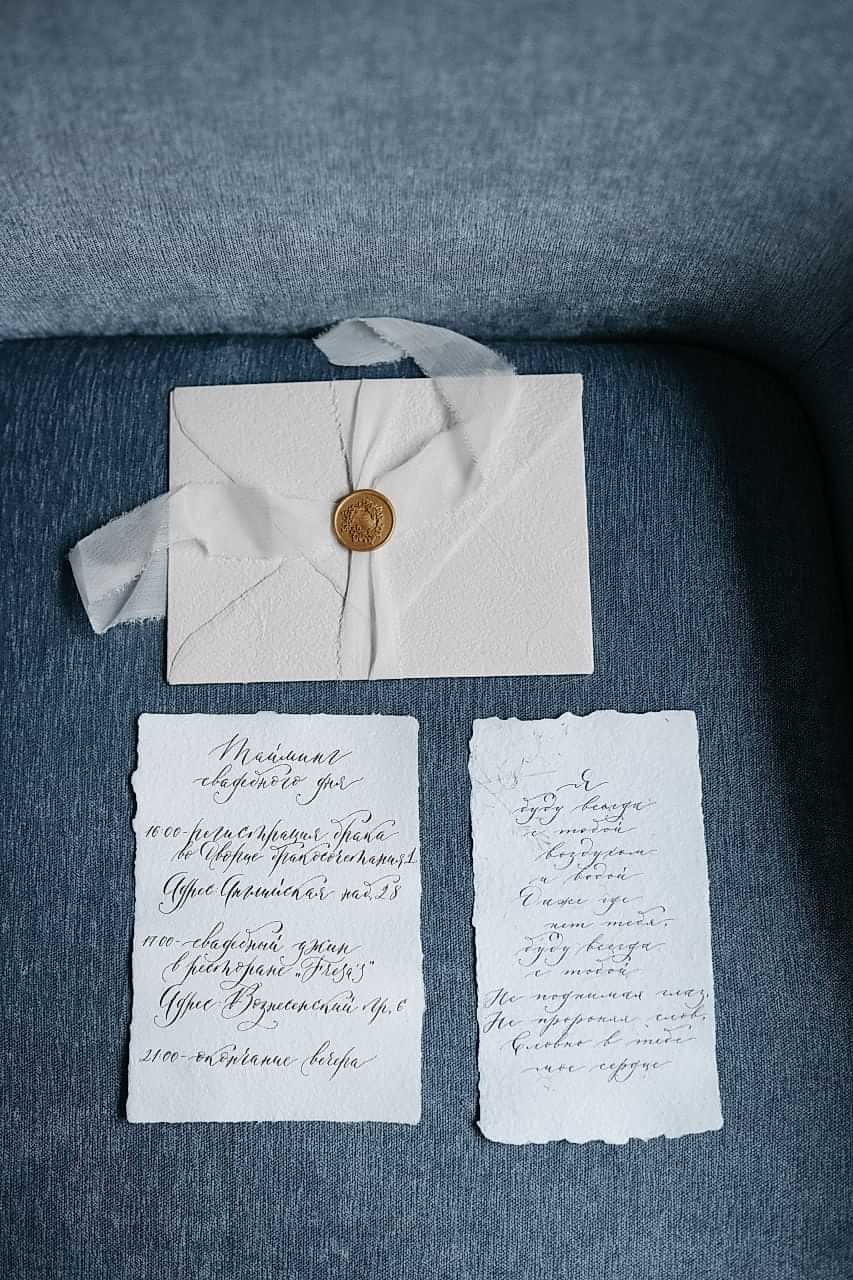 Тайминг
свадебного дня
16:00-регистрация брака
во Дворце бракосочетания 1
Адрес Английская наб. 28
17:00-свадебный ужин
в ресторане „Fresa's"
Адрес-Вознесенский пр. 6
21:00-окончание вечера
Я
буду всегда
с тобой
воздухом
и водой
Даже где
нет тебя,
буду всегда
с тобой
Не поднимая глаз,
Не пророняя слов,
Словно в тебе
мое сердце